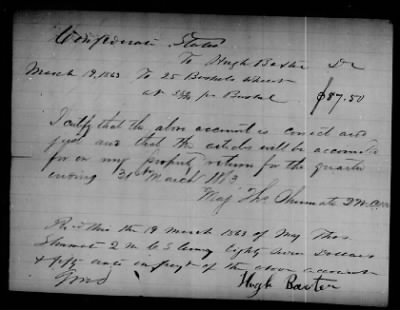 Confederate States
To Hugh Baxter Dr
March 19, 1863 To 25 Bushels Wheat
at 3 50/100 pr Bushel $87.50
I certify that the above account is correct and
just and that the articles will be accounted
for on my property return for the quarter
ending 31st March 1863
Maj Tho Shumate 2 M
Rec'd this the 19 March 1863 of Maj Thos
Shumate 2 M C S Army Eighty Seven Dollars
& fifty cents in payt of the above account
Hugh Baxter